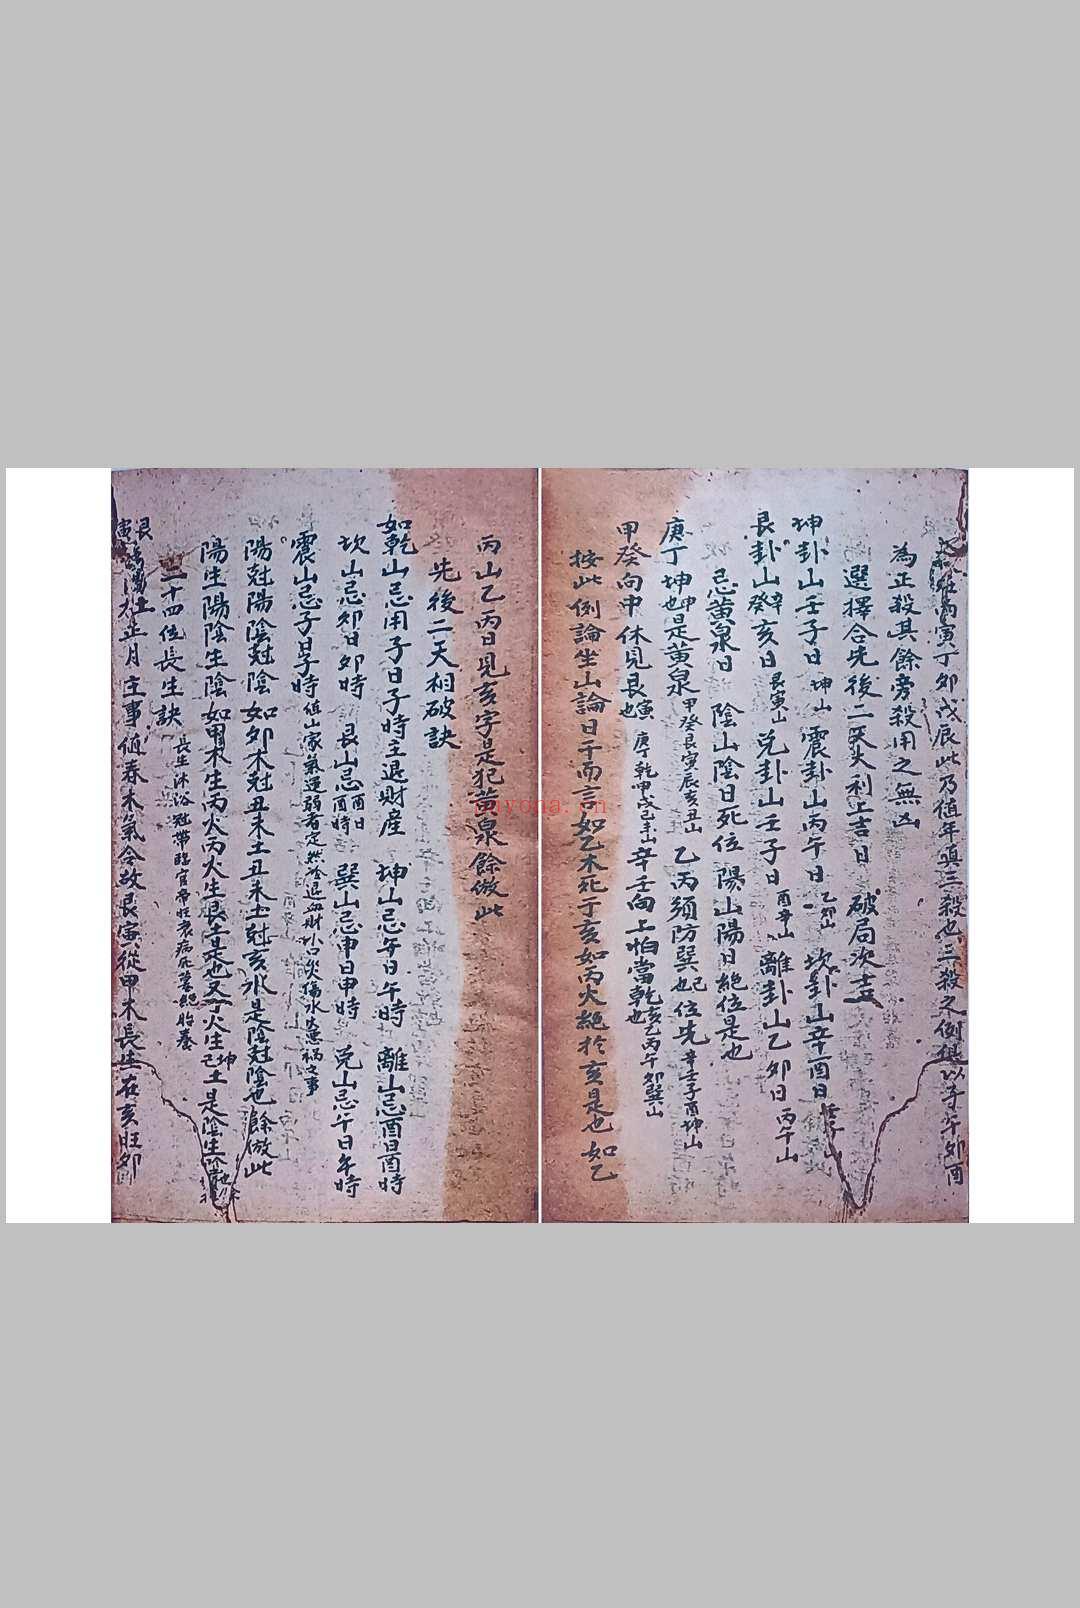 寅丁卯戊辰此乃值年真三殺也三殺之例 以子午卯酉
為正殺其餘旁殺用之無凶
選擇合先後二天大利上吉日 破局次吉
坤卦山壬子日 坤山 震卦山丙午日 乙卯山 坎卦山辛酉日
艮卦山癸辛亥日 艮寅山 兌卦山壬子日 酉辛山 離卦山乙卯日 丙午山
忌黃泉日 陰山陰日死位 陽山陽日絕位是也
庚丁坤申也是黃泉 甲癸艮寅辰亥丑山 乙丙須防巽巳也位先 辛壬子酉坤山
甲癸向中休見艮寅也 庚丁乾甲戌己未山 辛壬向上怕當乾亥也 乙丙午卯巽山
按此例論坐山論日干而言如乙木死于亥如丙火絕於亥是也 如乙
丙山乙丙日見亥字是犯黃泉餘倣此
先後二天相破訣
如乾山忌用子日子時主退財產 坤山忌午日午時 離山忌酉日酉時
坎山忌卯日卯時 艮山忌酉日酉時 巽山忌申日申時 兌山忌午日午時
震山忌子日子時 值山家氣運弱者定然冷退血財小口災傷水 禍之事
陽尅陽陰尅陰 如卯木尅丑未土丑未土尅亥水是陰尅陰也餘倣此
陽生陽陰生陰 如甲木生丙火丙火生艮土是也又丁火生坤己土是陰生陰
二十四位長生訣 長生沐浴冠帶臨官帝旺衰病死墓絕胎養
艮寅 土 正月主事值春木氣令故艮寅從甲木長生在亥旺卯
uyona.cn